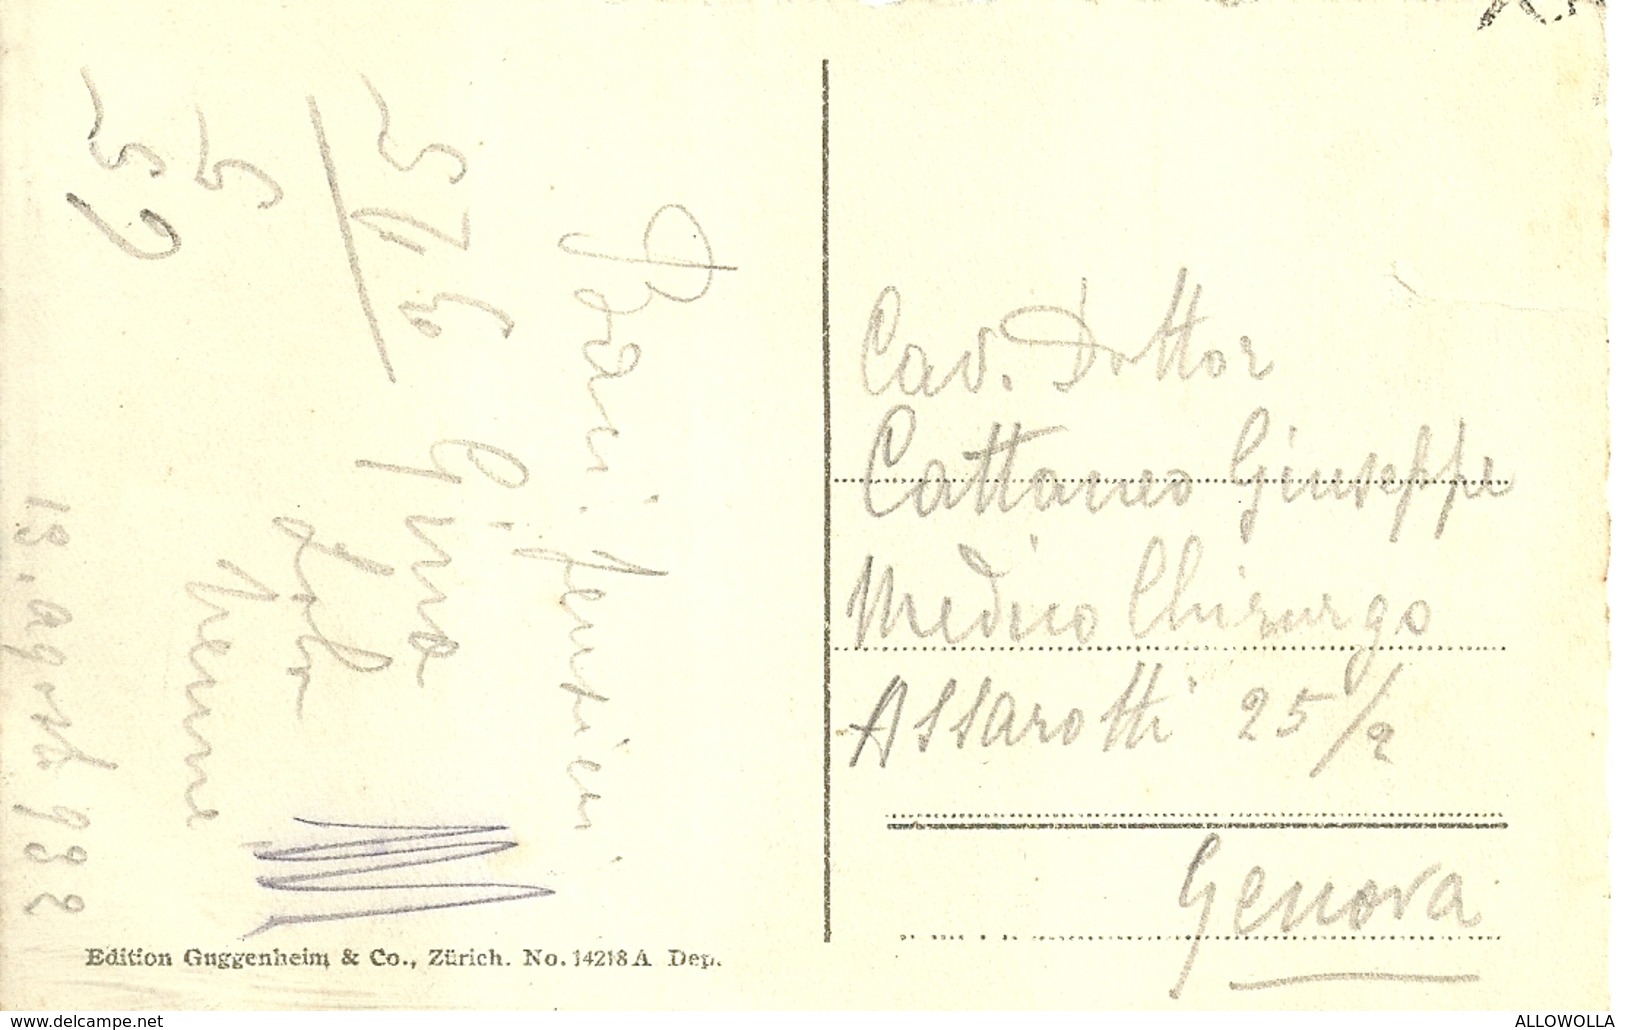 Baci. Gentieri
Gina
Irene
13. agosto 932
Cav. Dottor
Cattaneo Giuseppe
Medico Chirurgo
Assarotti 25/2
Genova
Edition Guggenheim & Co., Zürich. No. 14218 A Dep.
www.delcampe.net
ALLOWOLLA